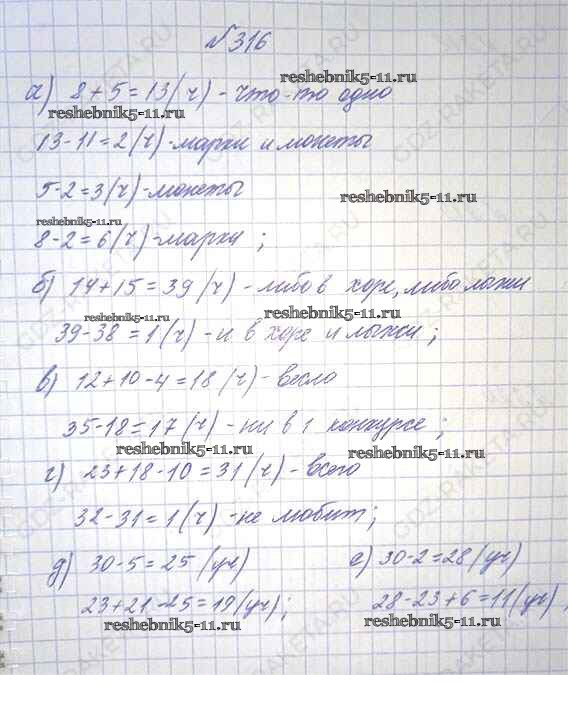 №316
reshebnik5-11.ru
а) 8+5=13(ч)-что-то одно
reshebnik5-11.ru
13-11=2(ч)-марки и монеты
5-2=3(ч)-монеты
reshebnik5-11.ru
reshebnik5-11.ru
8-2=6(ч)-марки;
б) 14+15=39(ч)-либо в хоре, либо лыжи
reshebnik5-11.ru
reshebnik5-11.ru
39-38=1(ч)-и в хоре и лыжи;
в) 12+10-4=18(ч)-всего
35-18=17(ч)-ни в 1 конкурсе;
reshebnik5-11.ru
reshebnik5-11.ru
г) 23+18-10=31(ч)-всего
32-31=1(ч)-не любит;
д) 30-5=25(уч) е) 30-2=28(уч)
23+21-25=19(уч); 28-23+6=11(уч),
reshebnik5-11.ru
reshebnik5-11.ru
GDZ.RAKETA.RU